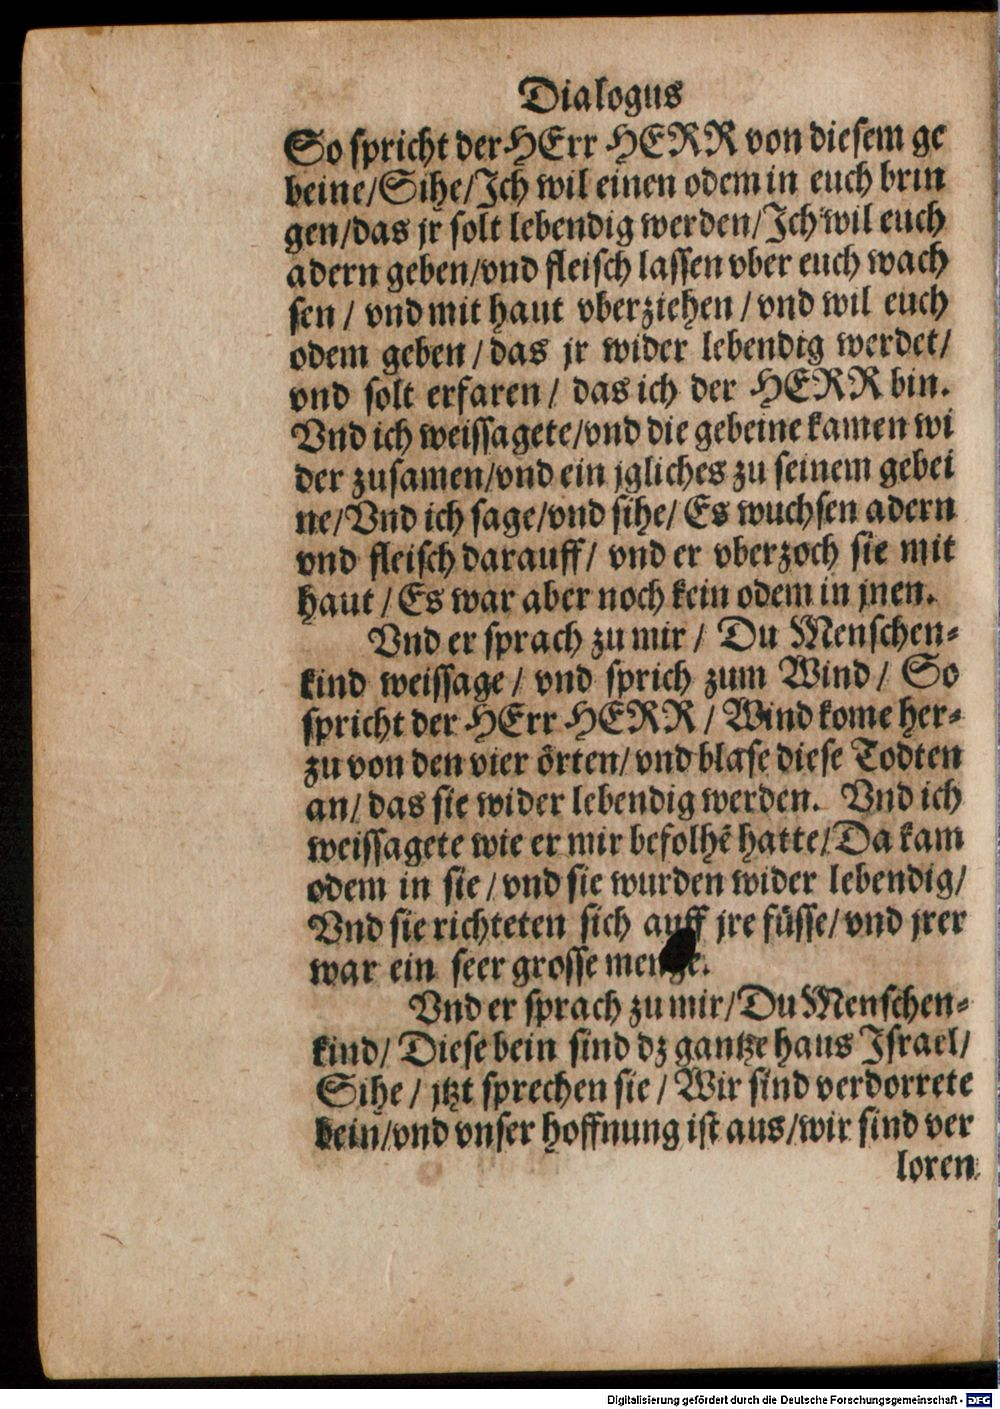 Dialogus
So spricht der HErr HERR von diesem ge
beine/Sihe/Ich wil einen odem in euch brin
gen/das jr solt lebendig werden/Ich wil euch
adern geben/vnd fleisch lassen vber euch wach
sen / vnd mit haut vberziehen / vnd wil euch
odem geben / das jr wider lebendig werdet/
vnd solt erfaren / das ich der HERR bin.
Vnd ich weissagete/vnd die gebeine kamen wi
der zusamen/vnd ein jgliches zu seinem gebei
ne/Vnd ich sage/vnd sihe/ Es wuchsen adern
vnd fleisch darauff/ vnd er vberzoch sie mit
haut / Es war aber noch kein odem in jnen.
Vnd er sprach zu mir / Du Menschen⸗
kind weissage / vnd sprich zum Wind / So
spricht der HErr HERR / Wind kome her⸗
zu von den vier örten/ vnd blase diese Todten
an/ das sie wider lebendig werden. Vnd ich
weissagete wie er mir befolhẽ hatte/Da kam
odem in sie / vnd sie wurden wider lebendig/
Vnd sie richteten sich auff jre füsse/ vnd jrer
war ein seer grosse menge.
Vnd er sprach zu mir/Du Menschen⸗
kind/ Diese bein sind dz gantze haus Israel/
Sihe / jtzt sprechen sie / Wir sind verdorrete
bein/vnd vnser hoffnung ist aus/wir sind ver
loren
Digitalisierung gefördert durch die Deutsche Forschungsgemeinschaft - DFG